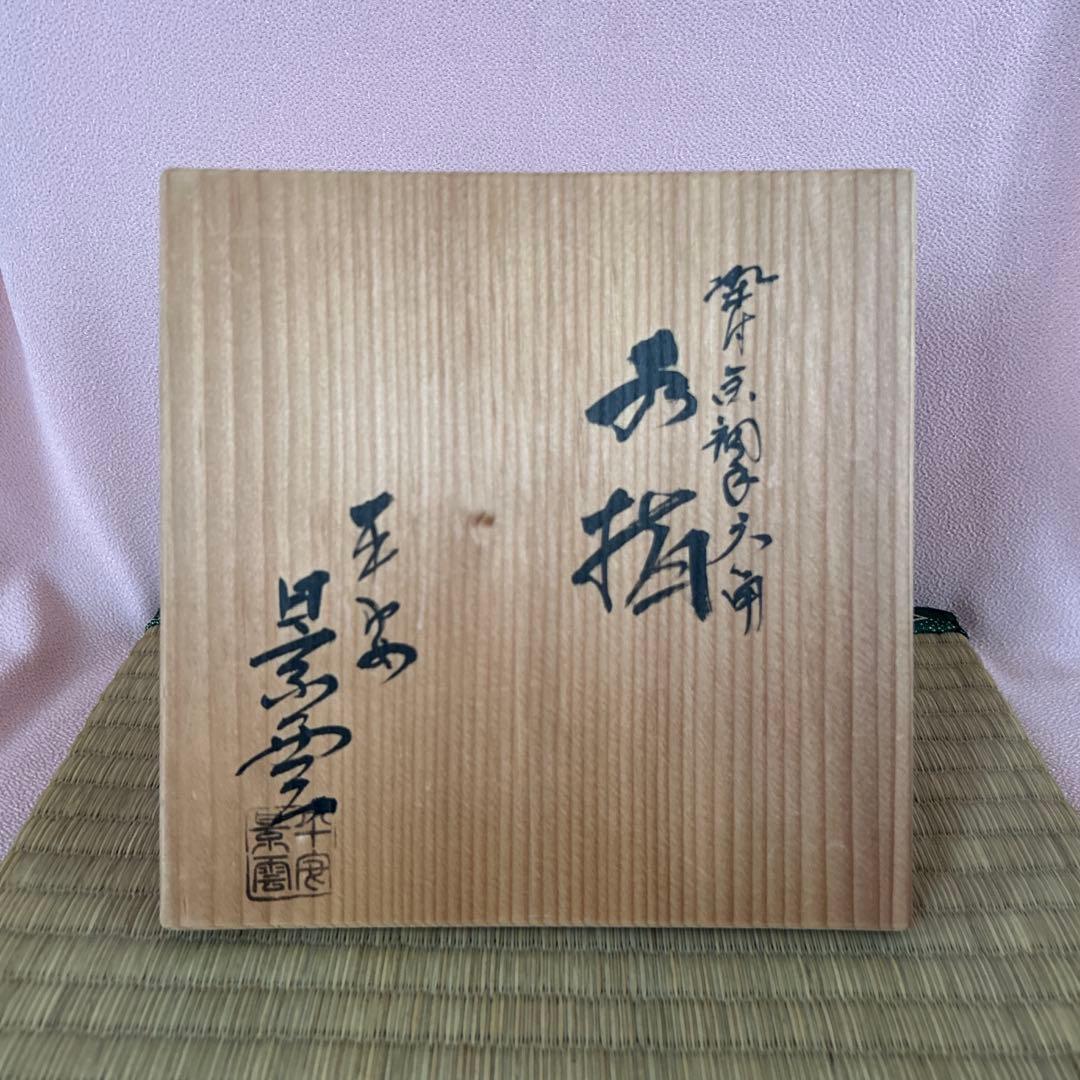 染付京詞手六角
水指
平安
景雲
平安
景雲